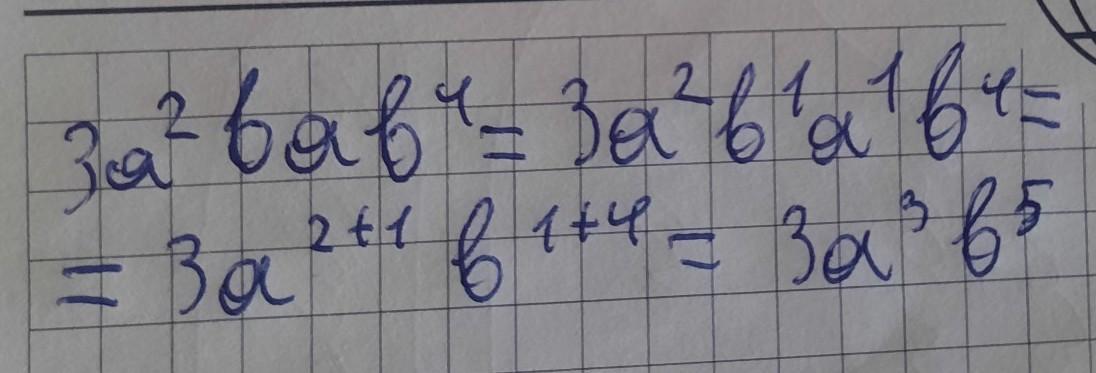 3a² b a b⁴ = 3a² b¹ a¹ b⁴ =
= 3a²⁺¹ b¹⁺⁴ = 3a³ b⁵